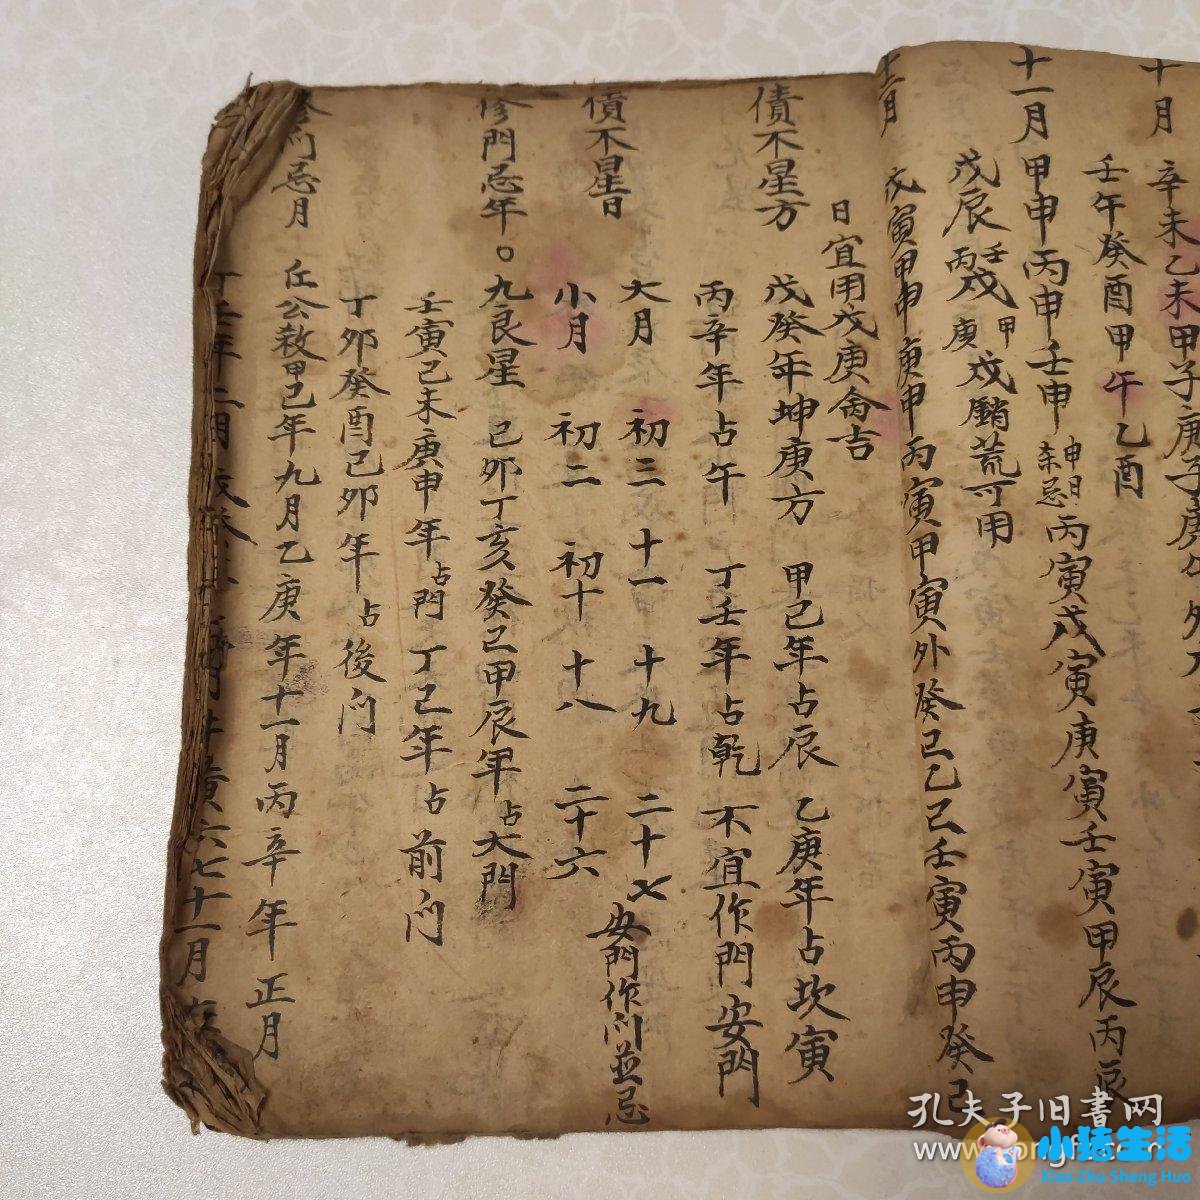 十月
辛未乙未甲子庚子庚
壬午癸酉甲午乙酉
十一月
甲申丙申壬申
申日
忌
丙寅戊寅庚寅壬寅甲辰丙辰
戊辰
壬
丙戌
甲
庚戌
荒可用
十二月
戊寅甲申庚申丙寅甲寅外癸已乙已壬寅丙申癸已
日宜用戊庚禽吉
債不星方
戊癸年坤庚方 甲己年占辰 乙庚年占坎寅
丙辛年占午 丁壬年占乾 不宜作門安門
債不星日
大月 初三 十一 十九 二十七
小月 初二 初十 十八 二十六
安門作门並忌
修門忌年○九良星 已卯丁亥癸已甲辰年占大門
壬寅己未庚申年占門 丁已年占前门
丁卯癸酉己卯年占後门
门忌月 丘公殺甲己年九月乙庚年十一月丙辛年正月
丁壬年二月
月
黄六七十一月
孔夫子旧書网
小猪生活
Xiao Zhu Sheng Huo